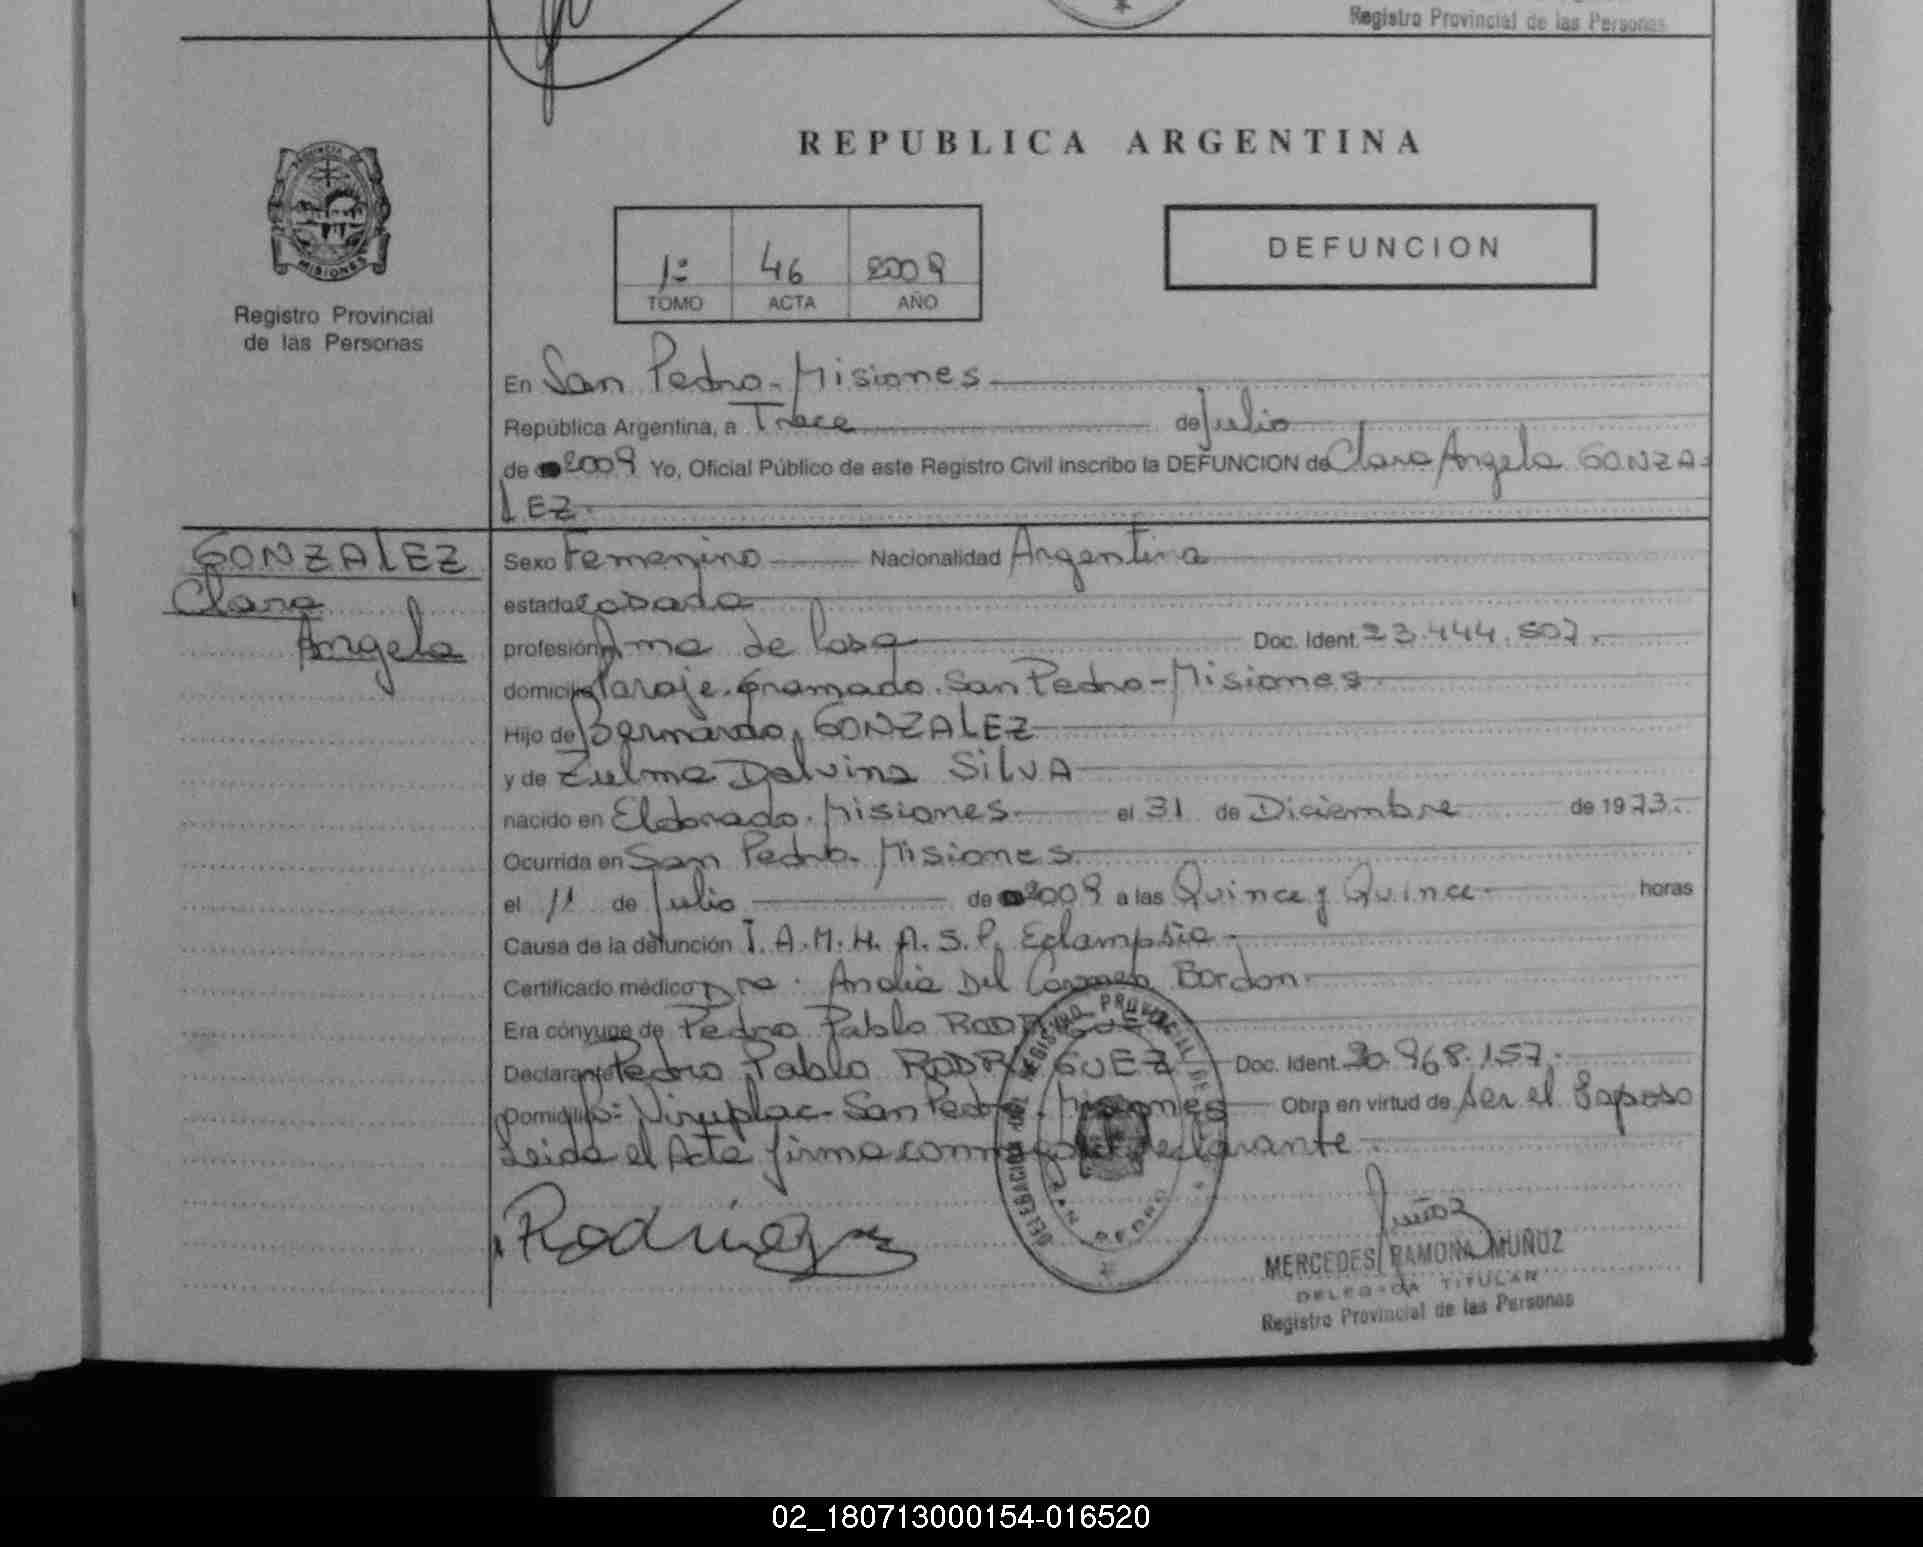 Registro Provincial de las Personas
REPUBLICA ARGENTINA
PROVINCIA DE
MISIONES
Registro Provincial
de las Personas
1º 46 2009
TOMO ACTA AÑO
DEFUNCION
En San Pedro - Misiones
República Argentina, a Trece de Julio
de 2009 Yo, Oficial Público de este Registro Civil inscribo la DEFUNCION de Clara Angela GONZA-
LEZ.
GONZALEZ
Clara
Angela
Sexo Femenino Nacionalidad Argentina
estado Casada
profesión Ama de Casa Doc. Ident. 23.444.507.
domicilio Paraje Gramado. San Pedro - Misiones
Hijo de Bernardo GONZALEZ
y de Zulma Dalvina SILVA
nacido en Eldorado. Misiones el 31 de Diciembre de 1973.
Ocurrida en San Pedro. Misiones
el 11 de Julio de 2009 a las Quince y Quince horas
Causa de la defunción I.A.M.H. A.S.P. Eclampsia
Certificado médico Dra. Analia Del Carmen Bordon.
Era cónyuge de Pedro Pablo RODRIGUEZ
Declarante Pedro Pablo RODRIGUEZ Doc. Ident. 20.968.157.
Domicilio: Viruplac - San Pedro. Misiones Obra en virtud de Ser el Esposo
Leida el Acta firma conmigo el declarante.
DELEGACION DEL REGISTRO PROVINCIAL DE
SAN PEDRO
Rodriguez
Muñoz
MERCEDES RAMONA MUÑOZ
DELEGADA TITULAR
Registro Provincial de las Personas
02_180713000154-016520